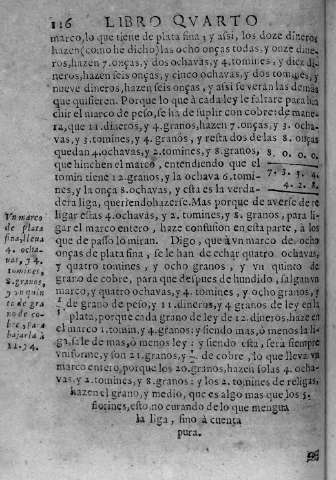 116 LIBRO QVARTO
marco, lo que tiene de plata fina; y assi, los doze dineros
hazen (como he dicho) las ocho onças todas, y onze dine
ros, hazen 7. onças, y dos ochavas, y 4. tomines, y diez di
neros, hazen seis onças, y cinco ochavas, y dos tomines, y
nueve dineros, hazen seis onças, y assi se veran las demàs
que quisieren. Porque lo que à cada ley le faltare para hin
chir el marco de peso, se ha de suplir con cobre: de mane-
ra, que 11. dineros, y 4. granos, hazen 7. onças, y 3. ocha-
vas, y 3. tomines, y 4. granos, y resta dos de las 8. onças
quedan 4. ochavas, y 2. tomines, y 8. granos,
que hinchen el marco, entendiendo que el
tomin tiene 12. granos, y la ochava 6. tomi-
nes, y la onça 8. ochavas, y esta es la verda-
8. 0. 0. 0.
7. 3. 3. 4
4. 2. 8.
dera liga, queriendo hazerse. Mas porque de averse de re
ligar essas 4. ochavas, y 2. tomines, y 8. granos, para li-
gar el marco entero, haze confusion en esta parte, à los
que de passo lo miran. Digo, que à vn marco de ocho
onças de plata fina, se le han de echar quatro ochavas,
y quatro tomines, y ocho granos, y vn quinto de
grano de cobre, para que despues de hundido, salga vn
marco, y quatro ochavas, y 4. tomines, y ocho granos, y
1/5 de grano de peso, y 11. dineros, y 4. granos de ley en la
plata, porque cada grano de ley de 12. dineros, haze en
el marco 1. tomin, y 4. granos: y siendo mas, ò menos la li-
ga, sale de mas, ò menos ley: y siendo esta, serà siempre
vniforme, y son 21. granos, y 1/2 de cobre, lo que lleva vn
marco entero, porque los 20. granos, hazen solas 4. ocha-
vas, y 2. tomines, y 8. granos: y los 2. tomines de religas,
hazen el grano, y medio, que es algo mas que los 5.
esto, no curando de lo que mengua
la liga, sino à cuenta
pura.
Vn marco
de plata
fina, lleva
4. ocha-
vas, y 4.
tomines,
8. granos,
y vn quin
to de gra
no de co-
bre, para
baxarla à
11. y 4.